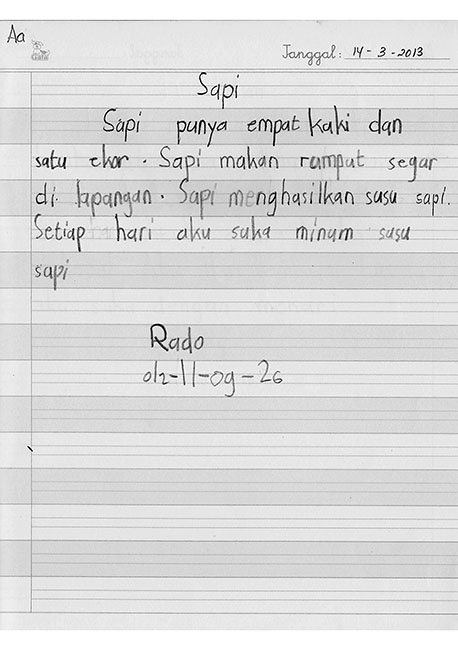 Aa
Gala
Tanggal: 14 - 3 - 2013
Sapi
Sapi punya empat kaki dan
satu ekor. Sapi makan rumput segar
di lapangan. Sapi menghasilkan susu sapi.
Setiap hari aku suka minum susu
sapi
Rado
012-11-09-26